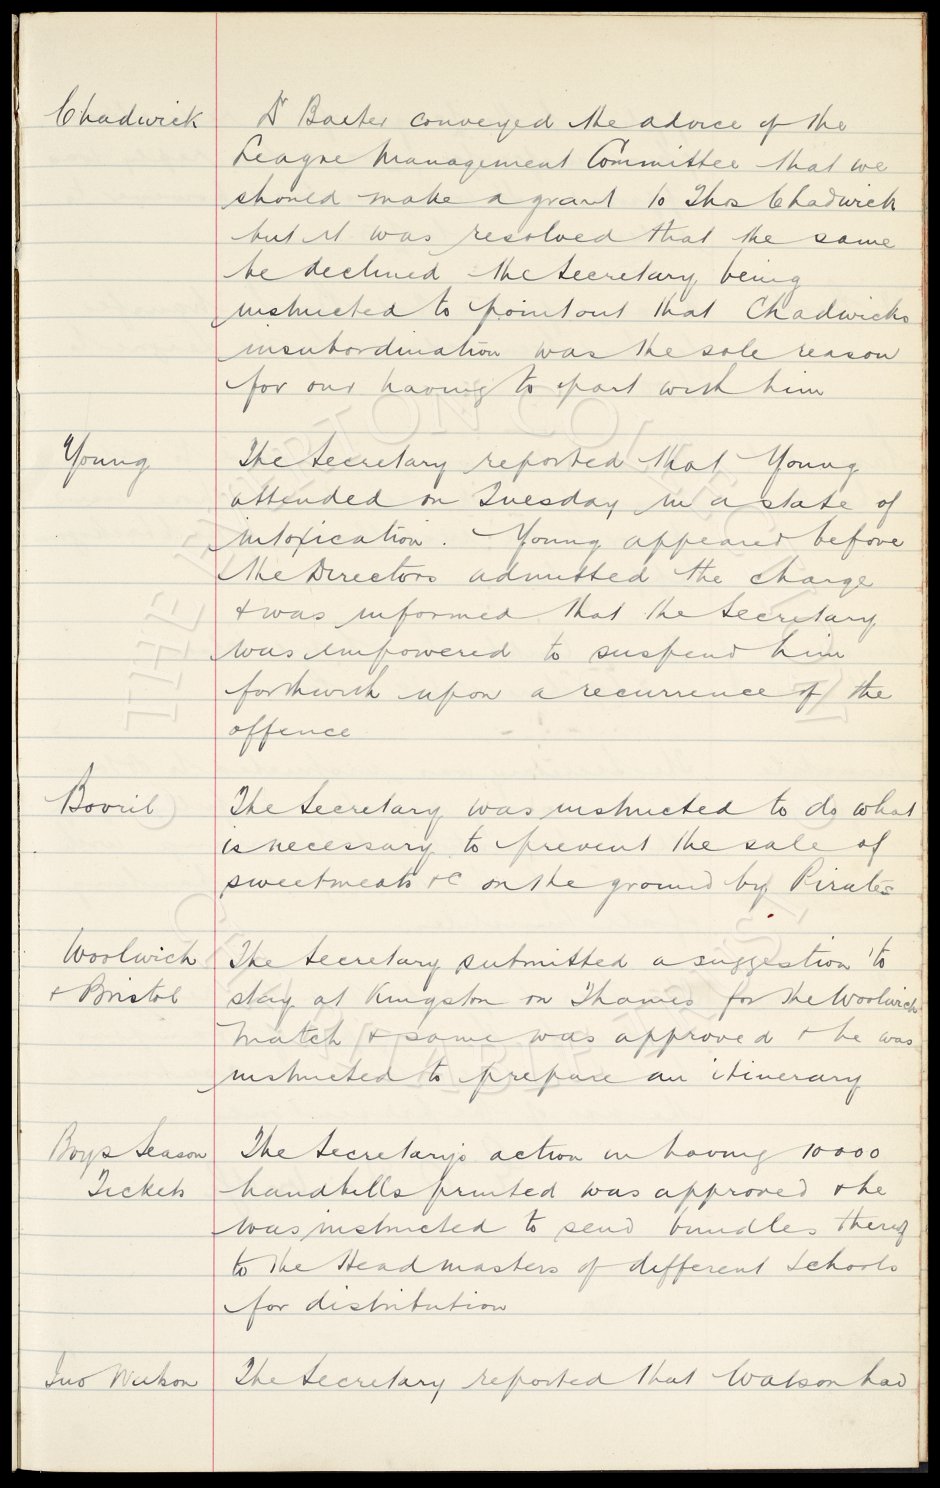 Chadwick
Dr Baxter conveyed the advice of the
League Management Committee that we
should make a grant to Thos Chadwick
but it was resolved that the same
be declined the Secretary being
instructed to point out that Chadwicks
insubordination was the sole reason
for our having to part with him
Young
The Secretary reported that Young
attended on Tuesday in a state of
intoxication. Young appeared before
the Directors admitted the charge
& was informed that the Secretary
was empowered to suspend him
forthwith upon a recurrence of the
offence
Bovril
The Secretary was instructed to do what
is necessary to prevent the sale of
sweetmeats &c on the ground by Pirates
Woolwich
& Bristol
The Secretary submitted a suggestion to
stay at Kingston on Thames for the Woolwich
match & same was approved & he was
instructed to prepare an itinerary
Boys Season
Tickets
The Secretary's action in having 10000
handbills printed was approved & he
was instructed to send bundles thereof
to the Headmasters of different Schools
for distribution
Jno Watson
The Secretary reported that Watson had
THE EVERTON COLLECTION
CHARITABLE TRUST